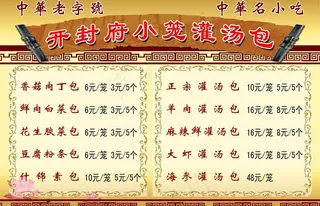 中華老字號
中華名小吃
开封府小笼灌汤包
香菇肉丁包 6元/笼 3元/5个
鲜肉白菜包 6元/笼 3元/5个
花生胶菜包 6元/笼 3元/5个
豆腐粉条包 6元/笼 3元/5个
什锦素包 10元/笼 5元/5个
正宗灌汤包 10元/笼 5元/5个
羊肉灌汤包 16元/笼 8元/5个
麻辣鲜灌汤包 16元/笼 8元/5个
大虾灌汤包 16元/笼 8元/5个
海参灌汤包 48元/笼